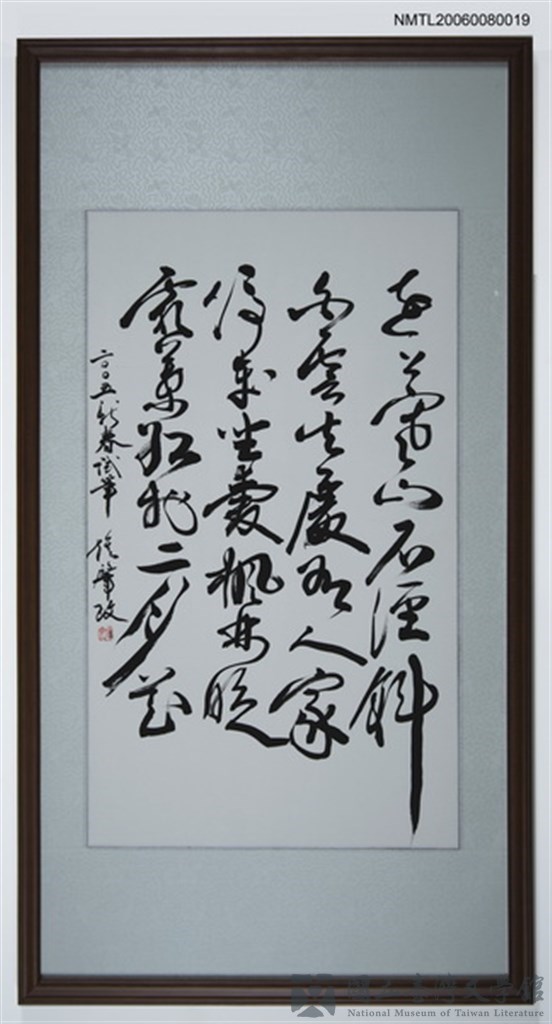 NMTL20060080019
遠上寒山石徑斜
白雲生處有人家
停車坐愛楓林晚
霜葉紅於二月花
二〇〇五新春試筆
國立臺灣文學館
National Museum of Taiwan Literature